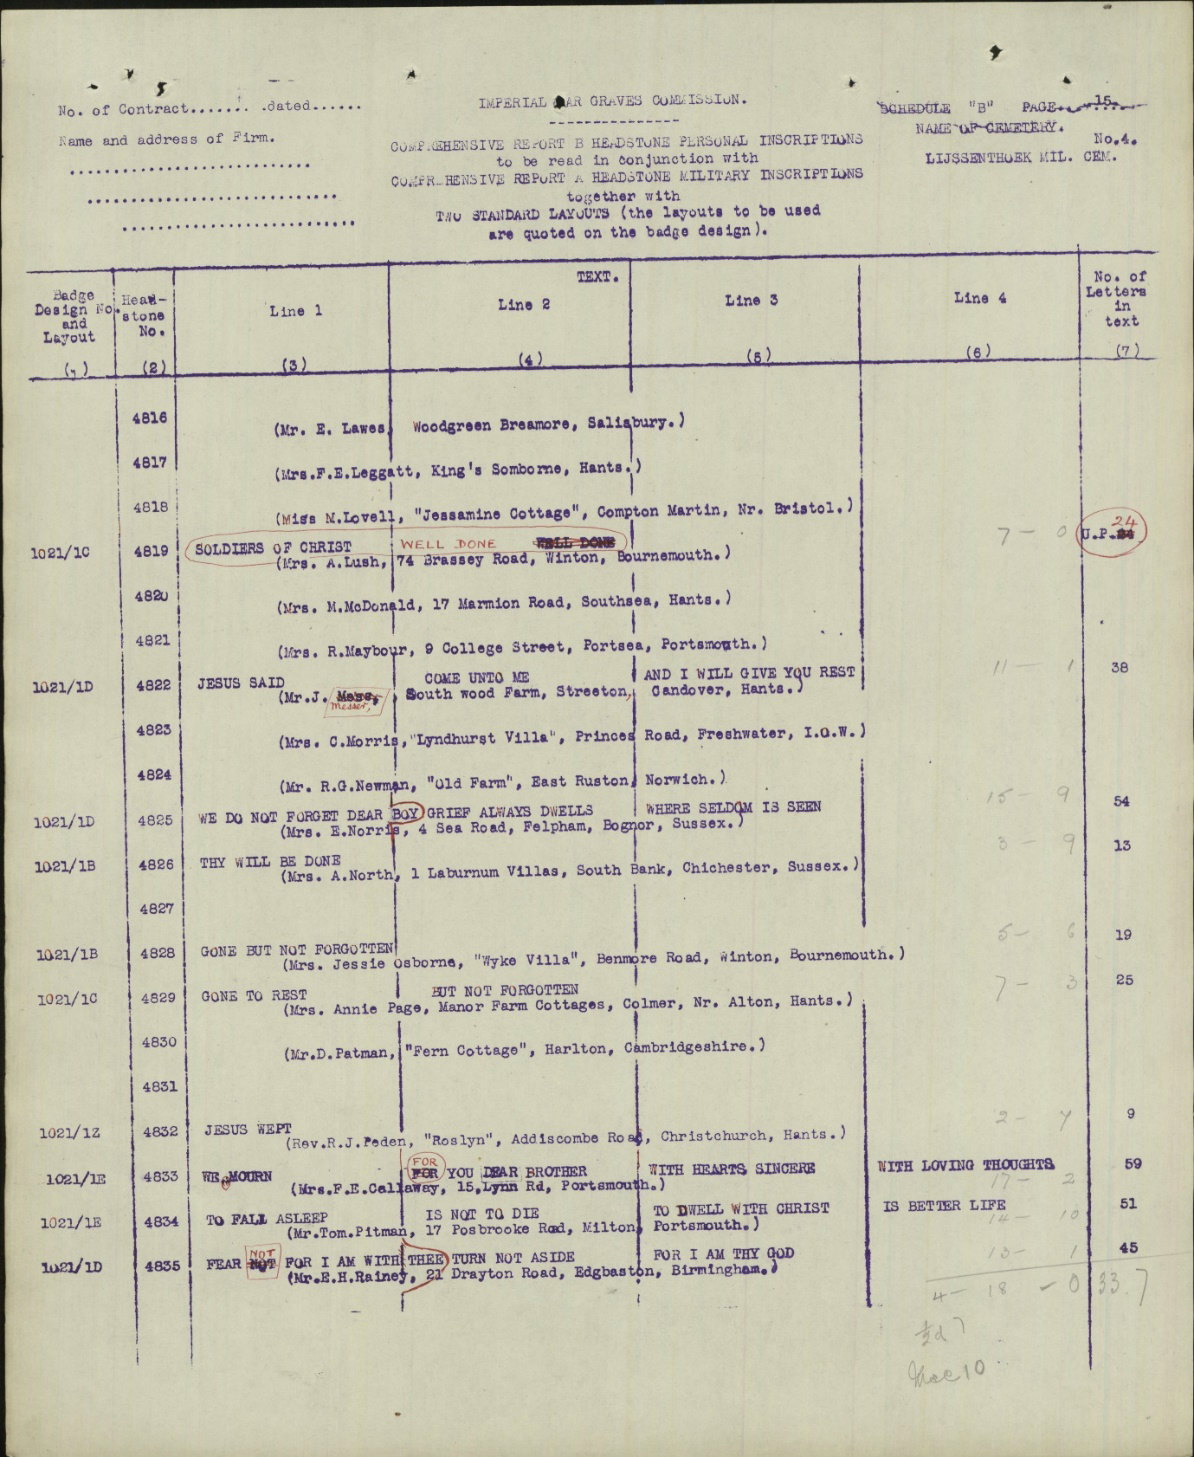 No. of Contract....... .dated......
Name and address of Firm.
IMPERIAL WAR GRAVES COMMISSION.
COMPREHENSIVE REPORT B HEADSTONE PERSONAL INSCRIPTIONS
to be read in conjunction with
COMPREHENSIVE REPORT A HEADSTONE MILITARY INSCRIPTIONS
together with
TWO STANDARD LAYOUTS (the layouts to be used
are quoted on the badge design).
SCHEDULE "B" PAGE 15.
NAME OF CEMETERY.
No.4.
LIJSSENTHOEK MIL. CEM.
TEXT.
Badge Design No. and Layout
Head-stone No.
Line 1
Line 2
Line 3
Line 4
No. of Letters in text
(1) (2) (3) (4) (5) (6) (7)
4816
(Mr. E. Lawes, Woodgreen Breamore, Salisbury.)
4817
(Mrs.F.E.Leggatt, King's Somborne, Hants.)
4818
(Miss M.Lovell, "Jessamine Cottage", Compton Martin, Nr. Bristol.)
1021/1C 4819 SOLDIERS OF CHRIST WELL DONE WELL DONE 7 - 0 U.P. 24
(Mrs. A.Lush, 74 Brassey Road, Winton, Bournemouth.)
4820
(Mrs. M.McDonald, 17 Marmion Road, Southsea, Hants.)
4821
(Mrs. R.Maybour, 9 College Street, Portsea, Portsmouth.)
1021/1D 4822 JESUS SAID COME UNTO ME AND I WILL GIVE YOU REST 11 - 1 38
(Mr.J. Mess, Messer, South wood Farm, Streeton, Candover, Hants.)
4823
(Mrs. C.Morris,"Lyndhurst Villa", Princes Road, Freshwater, I.O.W.)
4824
(Mr. R.G.Newman, "Old Farm", East Ruston, Norwich.)
1021/1D 4825 WE DO NOT FORGET DEAR BOY GRIEF ALWAYS DWELLS WHERE SELDOM IS SEEN 15 - 9 54
(Mrs. E.Norris, 4 Sea Road, Felpham, Bognor, Sussex.)
1021/1B 4826 THY WILL BE DONE 3 - 9 13
(Mrs. A.North, 1 Laburnum Villas, South Bank, Chichester, Sussex.)
4827
1021/1B 4828 GONE BUT NOT FORGOTTEN 5 - 6 19
(Mrs. Jessie Osborne, "Wyke Villa", Benmore Road, Winton, Bournemouth.)
1021/1C 4829 GONE TO REST BUT NOT FORGOTTEN 7 - 3 25
(Mrs. Annie Page, Manor Farm Cottages, Colmer, Nr. Alton, Hants.)
4830
(Mr.D.Patman, "Fern Cottage", Harlton, Cambridgeshire.)
4831
1021/1Z 4832 JESUS WEPT 2 - 7 9
(Rev.R.J.Peden, "Roslyn", Addiscombe Road, Christchurch, Hants.)
1021/1E 4833 WE MOURN FOR FOR YOU DEAR BROTHER WITH HEARTS SINCERE WITH LOVING THOUGHTS 17 - 2 59
(Mrs.F.E.Callaway, 15,Lynn Rd, Portsmouth.)
1021/1E 4834 TO FALL ASLEEP IS NOT TO DIE TO DWELL WITH CHRIST IS BETTER LIFE 14 - 10 51
(Mr.Tom.Pitman, 17 Posbrooke Road, Milton, Portsmouth.)
1021/1D 4835 FEAR NOT NOT FOR I AM WITH THEE TURN NOT ASIDE FOR I AM THY GOD 13 - 1 45
(Mr.E.H.Rainey, 21 Drayton Road, Edgbaston, Birmingham.)
4 - 18 - 0 33.7